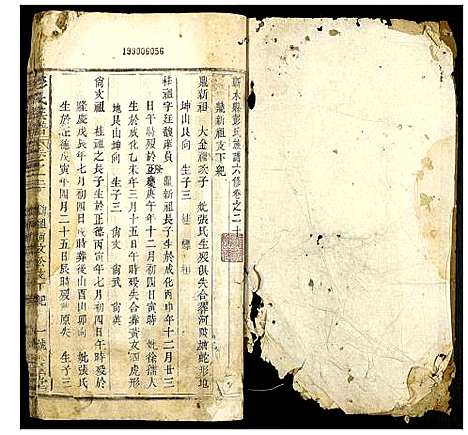 193006056
蘄水縣彭氏族譜六修卷之二十
鼎新祖支下紀
鼎新祖 大金祖次子 妣張氏生殁俱失合葬河
坤山艮向 生子三 桂 祖
桂祖字廷馥庠員 鼎新祖長子生於成化丙申年十二月廿三
日午時殁於正慶庚午年十二月初四日寅時 妣徐孺人
生於成化乙未年三月十五日午時殁失合葬黃文虎形
地艮山坤向 生子三 尙文 尙武 尙英
尙文祖 桂祖之長子生於正德丙寅年七月初四日午時殁於
隆慶戊辰年七月初四日殁葬後山酉山卯向 妣張氏
生於正德戊寅年四月二十五日辰時殁葬原失 生子三